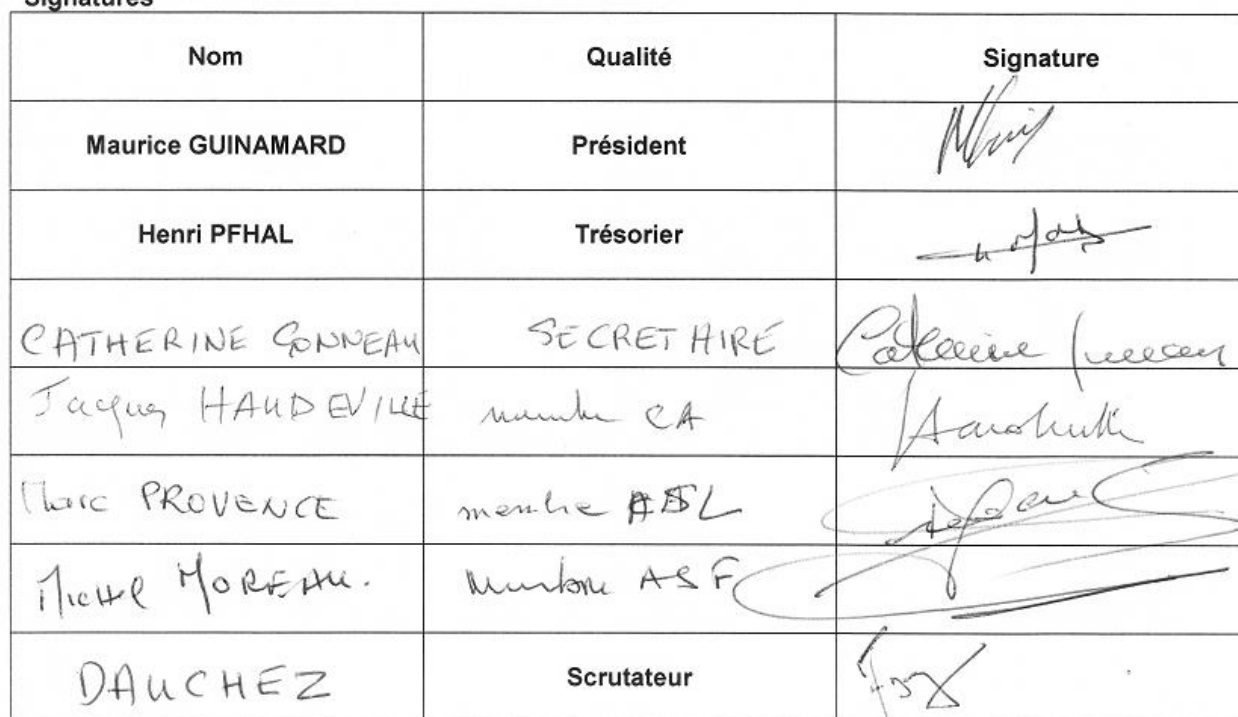 Signatures
Nom Qualité Signature
Maurice GUINAMARD Président
Henri PFHAL Trésorier
CATHERINE GONNEAU SECRETAIRE Catherine
Jacques HAUDEVILLE membre CA
Marc PROVENCE membre ASL
Michel MOREAU. Membre ASF
DAUCHEZ Scrutateur